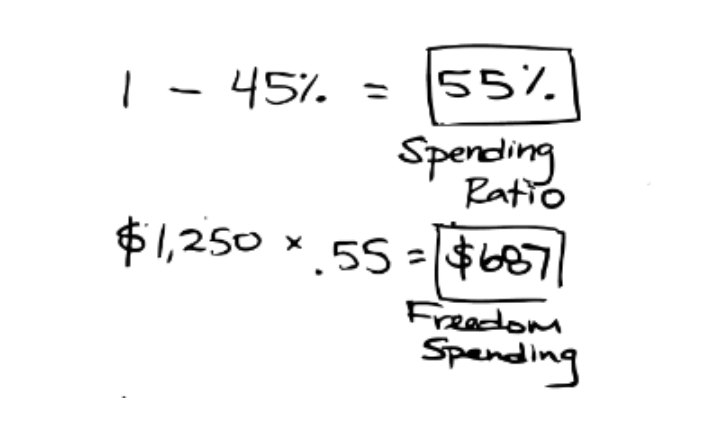 1 - 45% = 55%
Spending
Ratio
$1,250 × .55 = $687
Freedom
Spending